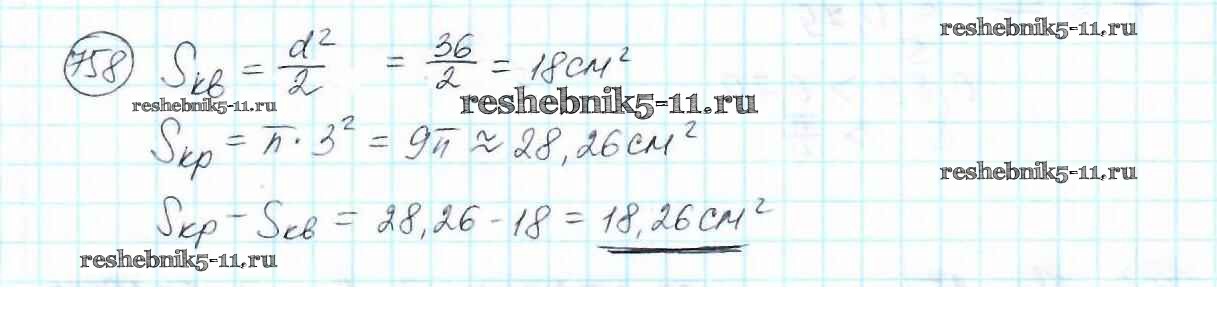 reshebnik5-11.ru
758 Sкв = d²/2 = 36/2 = 18 см²
reshebnik5-11.ru reshebnik5-11.ru
Sкр = π · 3² = 9π ≈ 28,26 см²
reshebnik5-11.ru
Sкр - Sкв = 28,26 - 18 = 18,26 см²
reshebnik5-11.ru